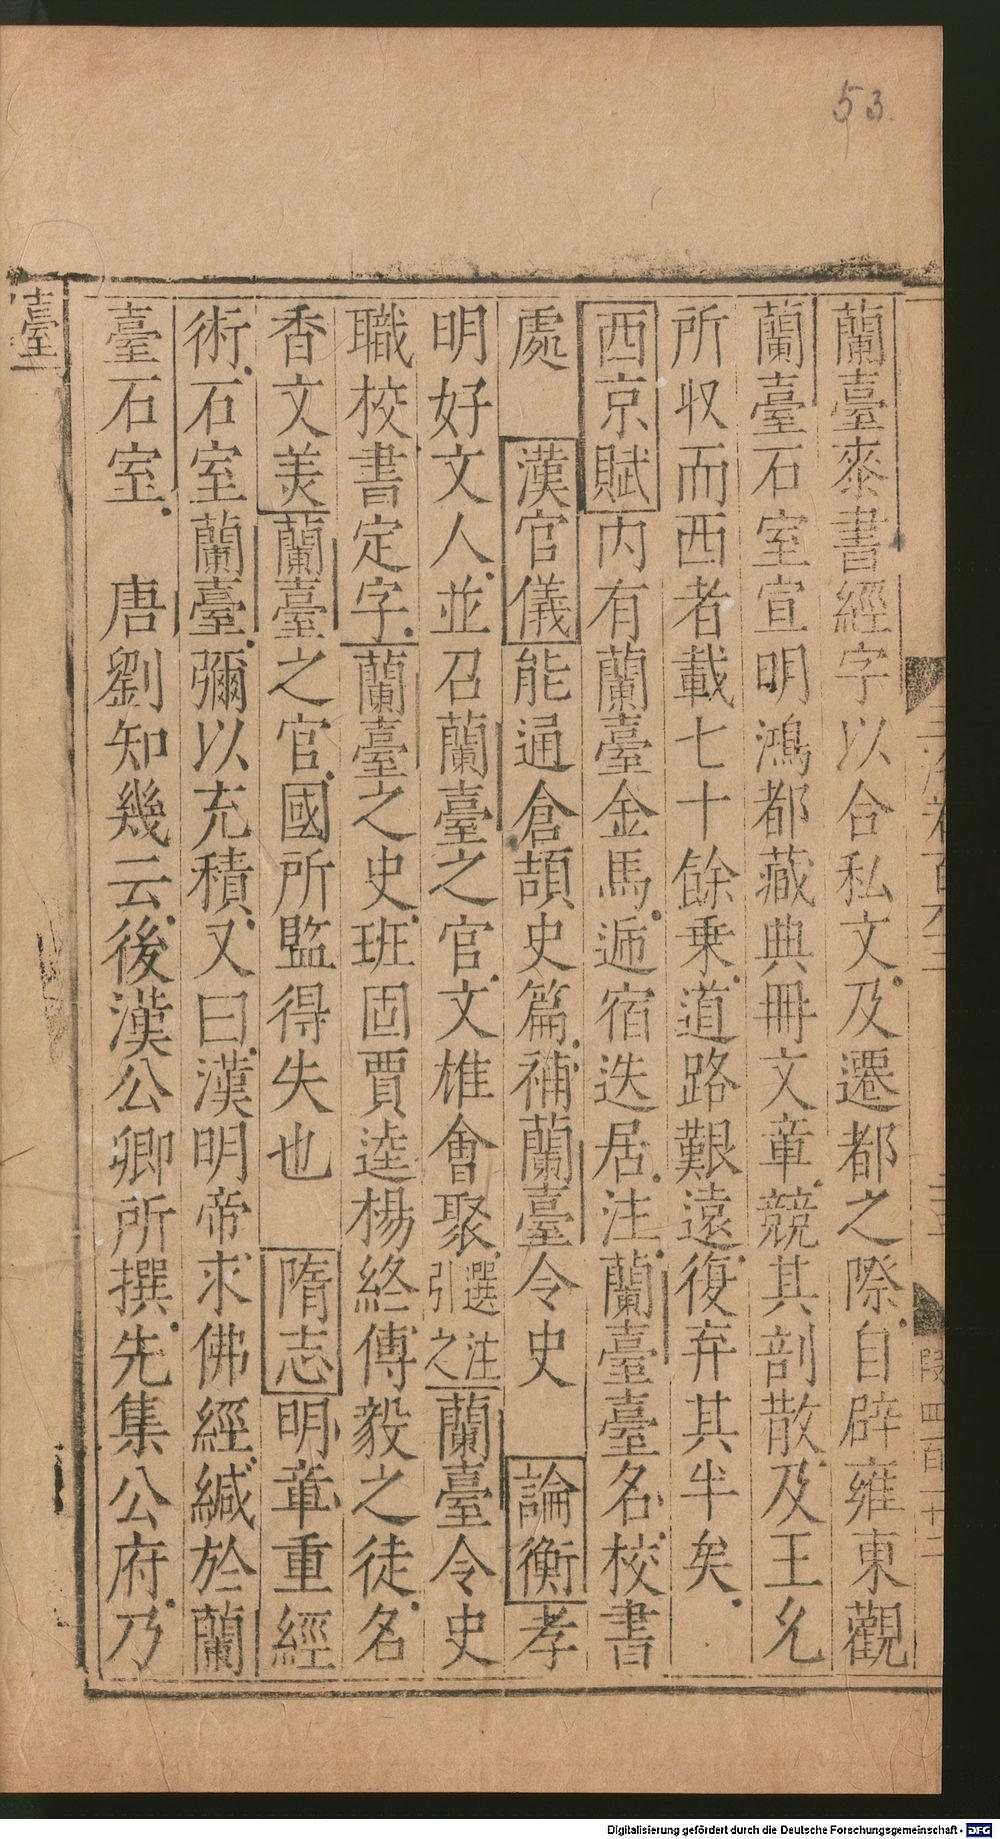 53
蘭臺桼書經字以合私文及遷都之際自辟雍東觀
蘭臺石室宣明鴻都藏典冊文章競其剖散及王允
所収而西者載七十餘乗道路艱遠復弃其半矣
西京賦内有蘭臺金馬逓宿迭居注蘭臺臺名校書
處 漢官儀能通倉頡史篇補蘭臺令史 論衡孝
明好文人並召蘭臺之官文雄會聚選注引之蘭臺令史
職校書定字蘭臺之史班固賈逵楊終傅毅之徒名
香文羙蘭臺之官國所監得失也 隋志明章重經
術石室蘭臺彌以充積又曰漢明帝求佛經緘於蘭
臺石室 唐劉知幾云後漢公卿所撰先集公府乃
臺
Digitalisierung gefördert durch die Deutsche Forschungsgemeinschaft - DFG